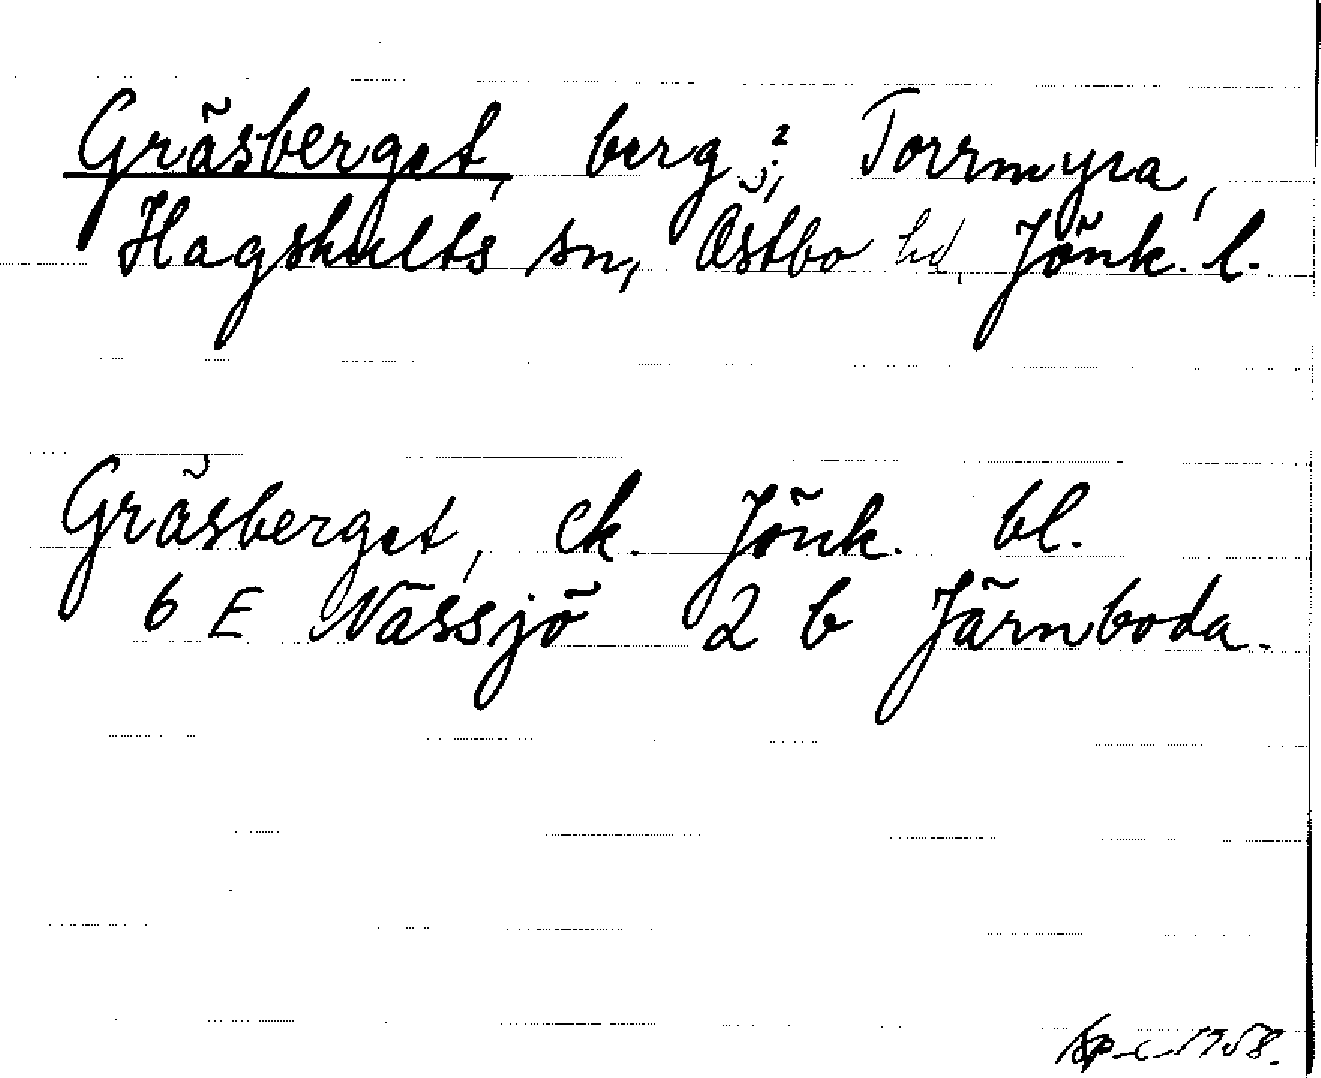 Gräsberget, berg, Torrmyra,
Hagshults sn, Östbo hd, Jönk. l.
Gräsberget, ek. Jönk. bl.
6 E Nässjö 2 b Järnboda.